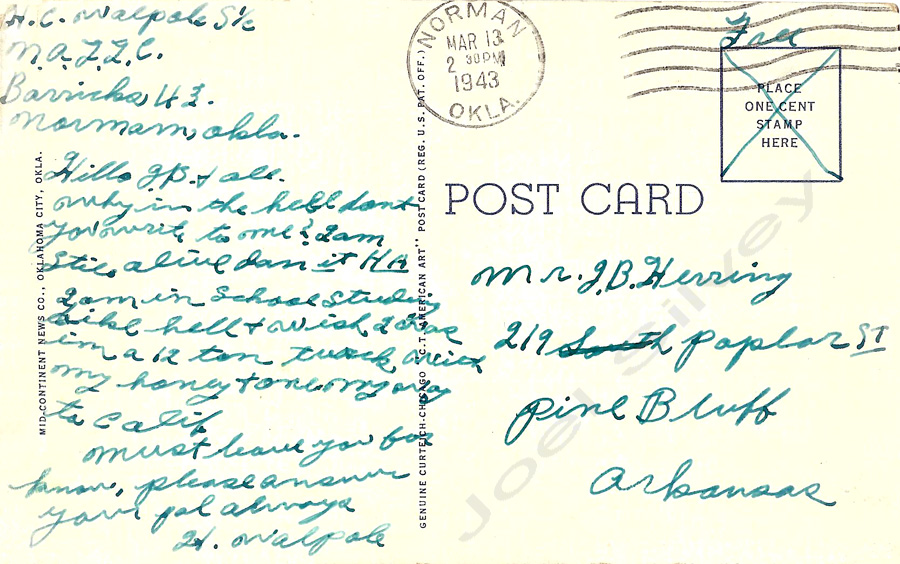 H.C. Walpole S 1/c
N.A.T.T.C.
Barricks 43.
Normam, okla.
Hillo J.B. & all.
Why in the hell dont
you write to me? I am
Still alive dam it HA
I am in School Studing
like hell & wish I was
in a 12 ton truck with
my honey & on my way
to Calif
must leave you boy
know, please answer
your pal always
H. Walpole
NORMAN
MAR 13
2 30 PM
1943
OKLA.
Free
PLACE
ONE CENT
STAMP
HERE
POST CARD
Mr. J.B. Herring
219 South Poplar ST
Pine Bluff
Arkansas
MID-CONTINENT NEWS CO., OKLAHOMA CITY, OKLA.
GENUINE CURTEICH-CHICAGO "C.T. AMERICAN ART" POST CARD (REG. U.S. PAT. OFF.)
Joel Silvey